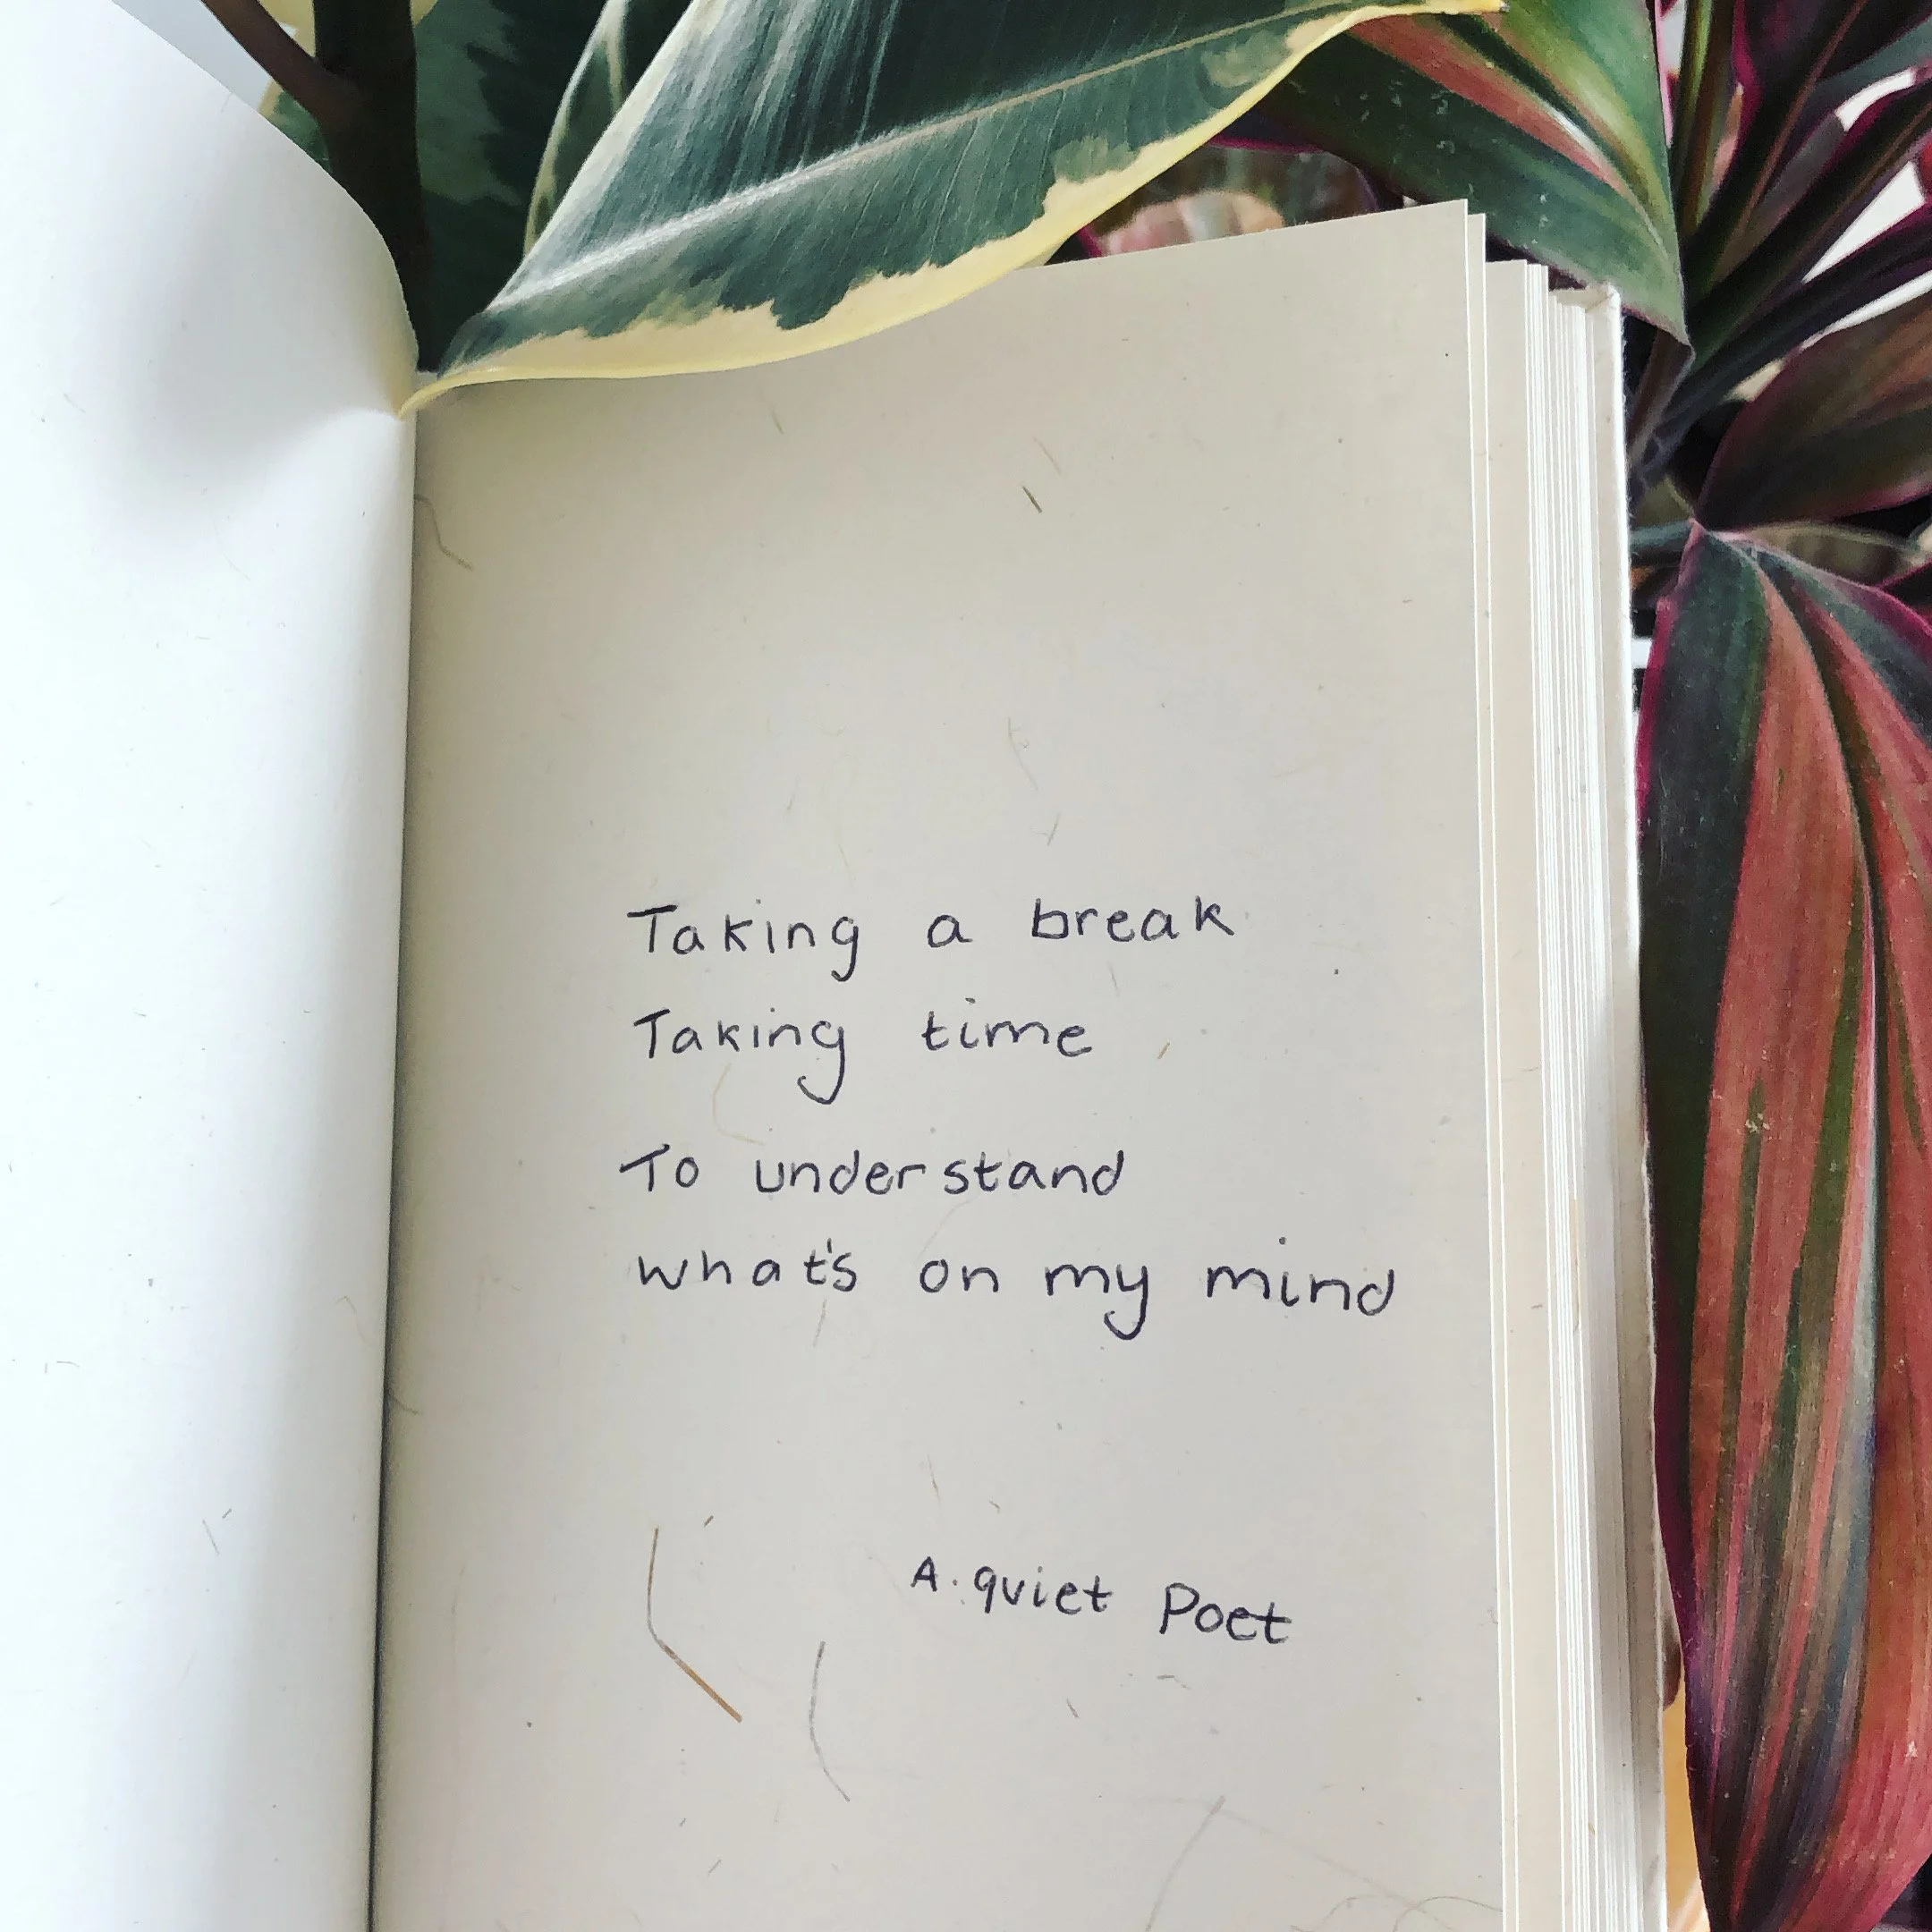 Taking a break
Taking time
To understand
what's on my mind
A. quiet Poet